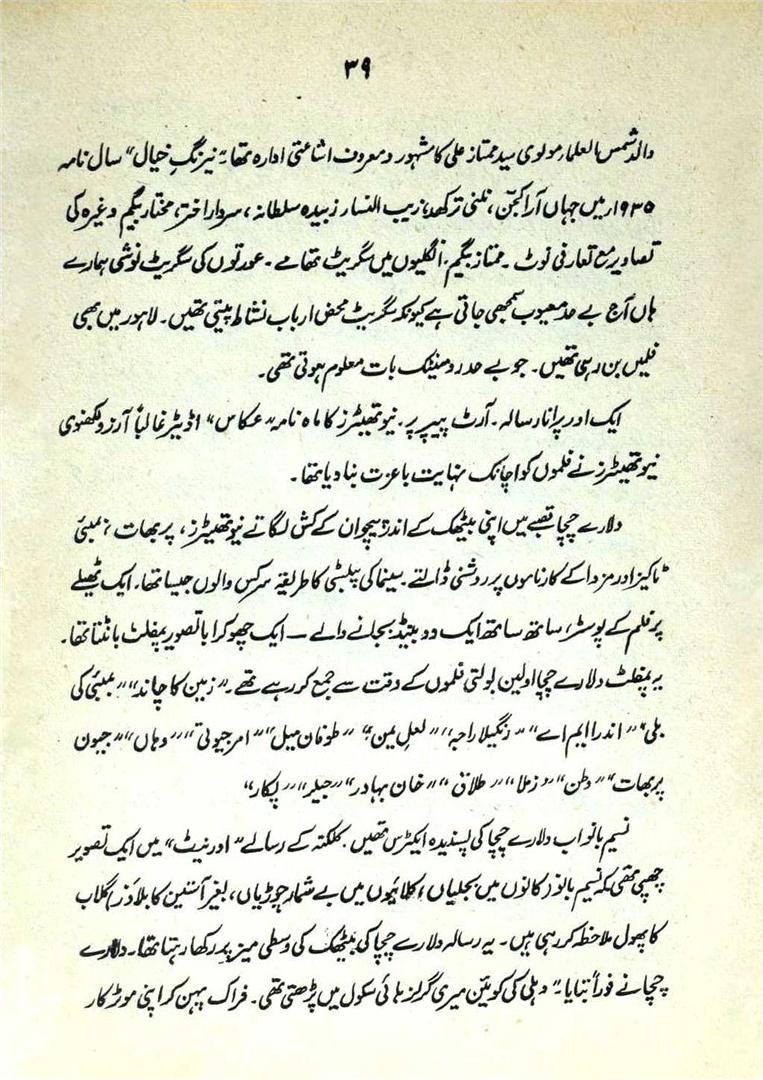 ۳۹
والد شمس العلماء مولوی سید ممتاز علی کا مشہور و معروف اشاعتی ادارہ تھا۔ "نیرنگِ خیال" سال نامہ
۱۹۳۵ء میں جہاں آرا کجّن، نلنی ترکھد، زیب النساء زبیدہ سلطانہ، سردار اختر، مختار بیگم وغیرہ کی
تصاویر مع تعارفی نوٹ۔ ممتاز بیگم۔ انگلیوں میں سگریٹ تھامے۔ عورتوں کی سگریٹ نوشی ہمارے
ہاں آج بے حد معیوب سمجھی جاتی ہے کیونکہ سگریٹ محض ارباب نشاط پیتی تھیں۔ لاہور میں بھی
فلمیں بن رہی تھیں۔ جو بے حد رومینٹک بات معلوم ہوتی تھی۔
ایک اور پرانا رسالہ۔ آرٹ پیپر پر۔ نیو تھیٹرز کا ماہ نامہ "عکاس" اڈیٹر غالباً آرزو لکھنوی
نیو تھیٹرز نے فلموں کو اچانک نہایت باعزت بنا دیا تھا۔
دلارے چچا قصبے میں اپنی بیٹھک کے اندر پیچوان کے کش لگاتے نیو تھیٹرز، پربھات، بمبئی
ٹاکیز اور مزدا کے کارناموں پر روشنی ڈالتے۔ سینما کی پبلسٹی کا طریقہ سرکس والوں جیسا تھا۔ ایک ٹھیلے
پر فلم کے پوسٹر، ساتھ ساتھ ایک دو بینڈ بجانے والے — ایک چھوکرا با تصویر پمفلٹ بانٹتا تھا۔
یہ پمفلٹ دلارے چچا اولین بولتی فلموں کے وقت سے جمع کر رہے تھے۔ "زمین کا چاند" "بمبئی کی
بلی" "اندرا ایم اے" "رنگیلا راجہ" "لعلِ یمن" "طوفان میل" "امر جیوتی" "وہاں" "جیون
پربھات" "وطن" "نرملا" "طلاق" "خان بہادر" "جیلر" "پکار"
نسیم بانو اب دلارے چچا کی پسندیدہ ایکٹرس تھیں۔ کلکتہ کے رسالے "اورنیٹ" میں ایک تصویر
چھپی تھی کہ نسیم بانو کانوں میں بجلیاں، کلائیوں میں بے شمار چوڑیاں، بغیر آستین کا بلاؤز، گلاب
کا پھول ملاحظہ کر رہی ہیں۔ یہ رسالہ دلارے چچا کی بیٹھک کی وسطی میز پر رکھا رہتا تھا۔ دلارے
چچا نے فوراً بتایا۔ "دہلی کی کوئین میری گرلز ہائی سکول میں پڑھتی تھی۔ فراک پہن کر اپنی موٹر کار